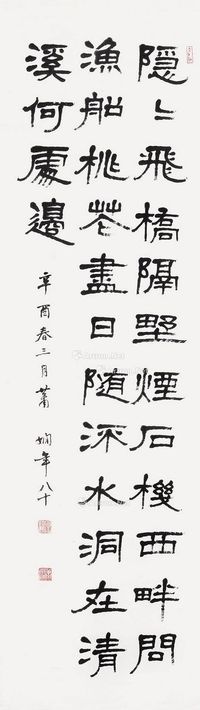 隐〻飛橋隔野煙石機西畔問
漁船桃花盡日随流水洞在清
溪何處邊
辛酉春三月蕭嫻年八十